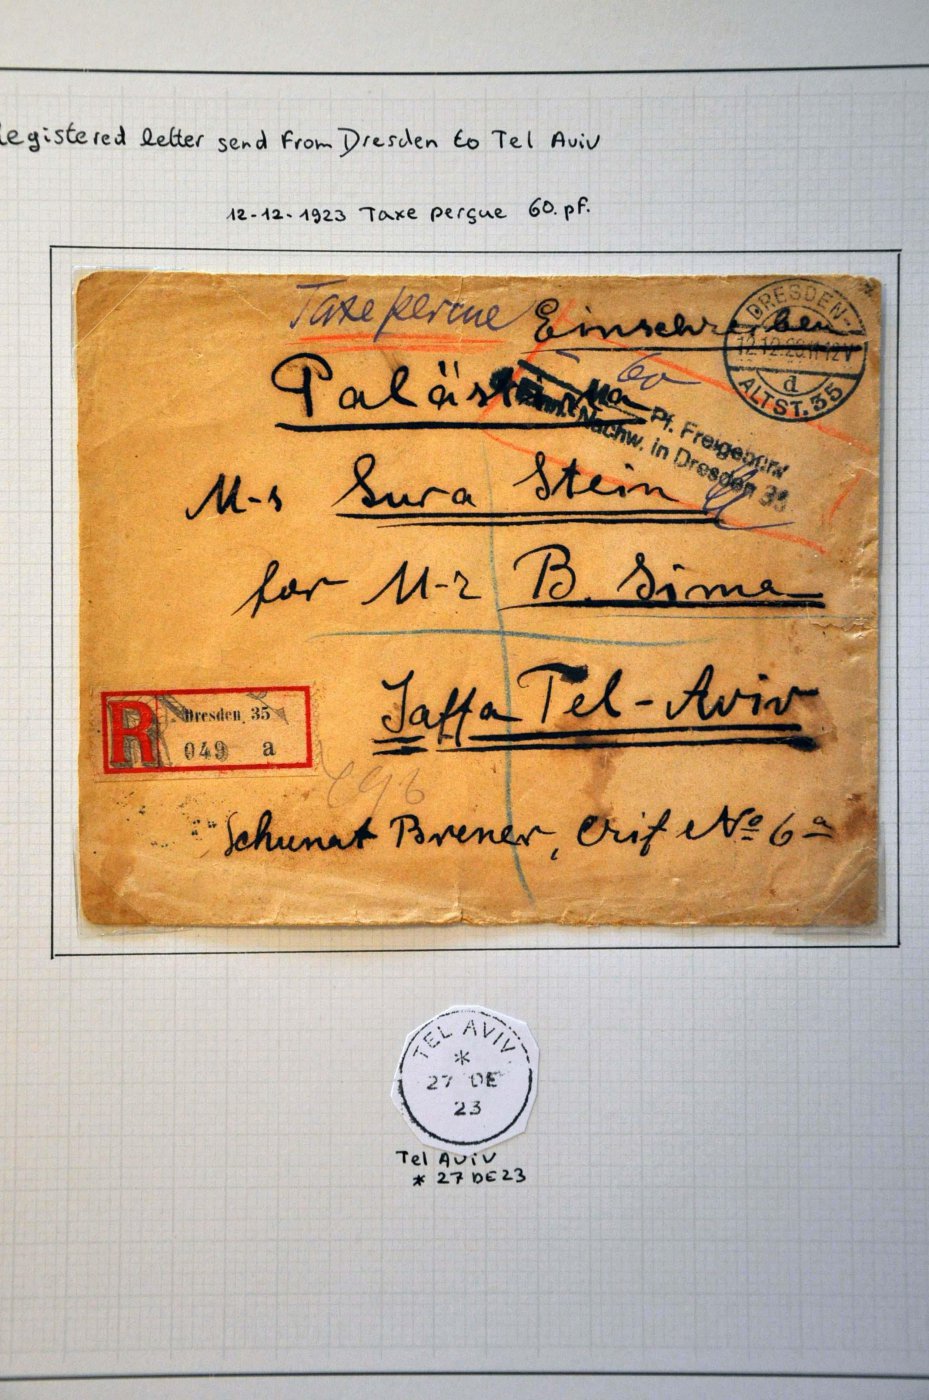 Registered letter send from Dresden to Tel Aviv
12-12-1923 Taxe perçue 60. pf.
Taxe percue
Einschreiben
DRESDEN-
12.12.23.11-12V
d
ALTST. 35
Palästina
60
Pf. Freigebühr
Nachw. in Dresden 35
M-s Sura Stein
for M-r B. Sima
Jaffa Tel-Aviv
R
Dresden 35
049 a
Schunat Brener, Crif No 6a
TEL AVIV
*
27 DE
23
Tel Aviv
* 27 DE 23